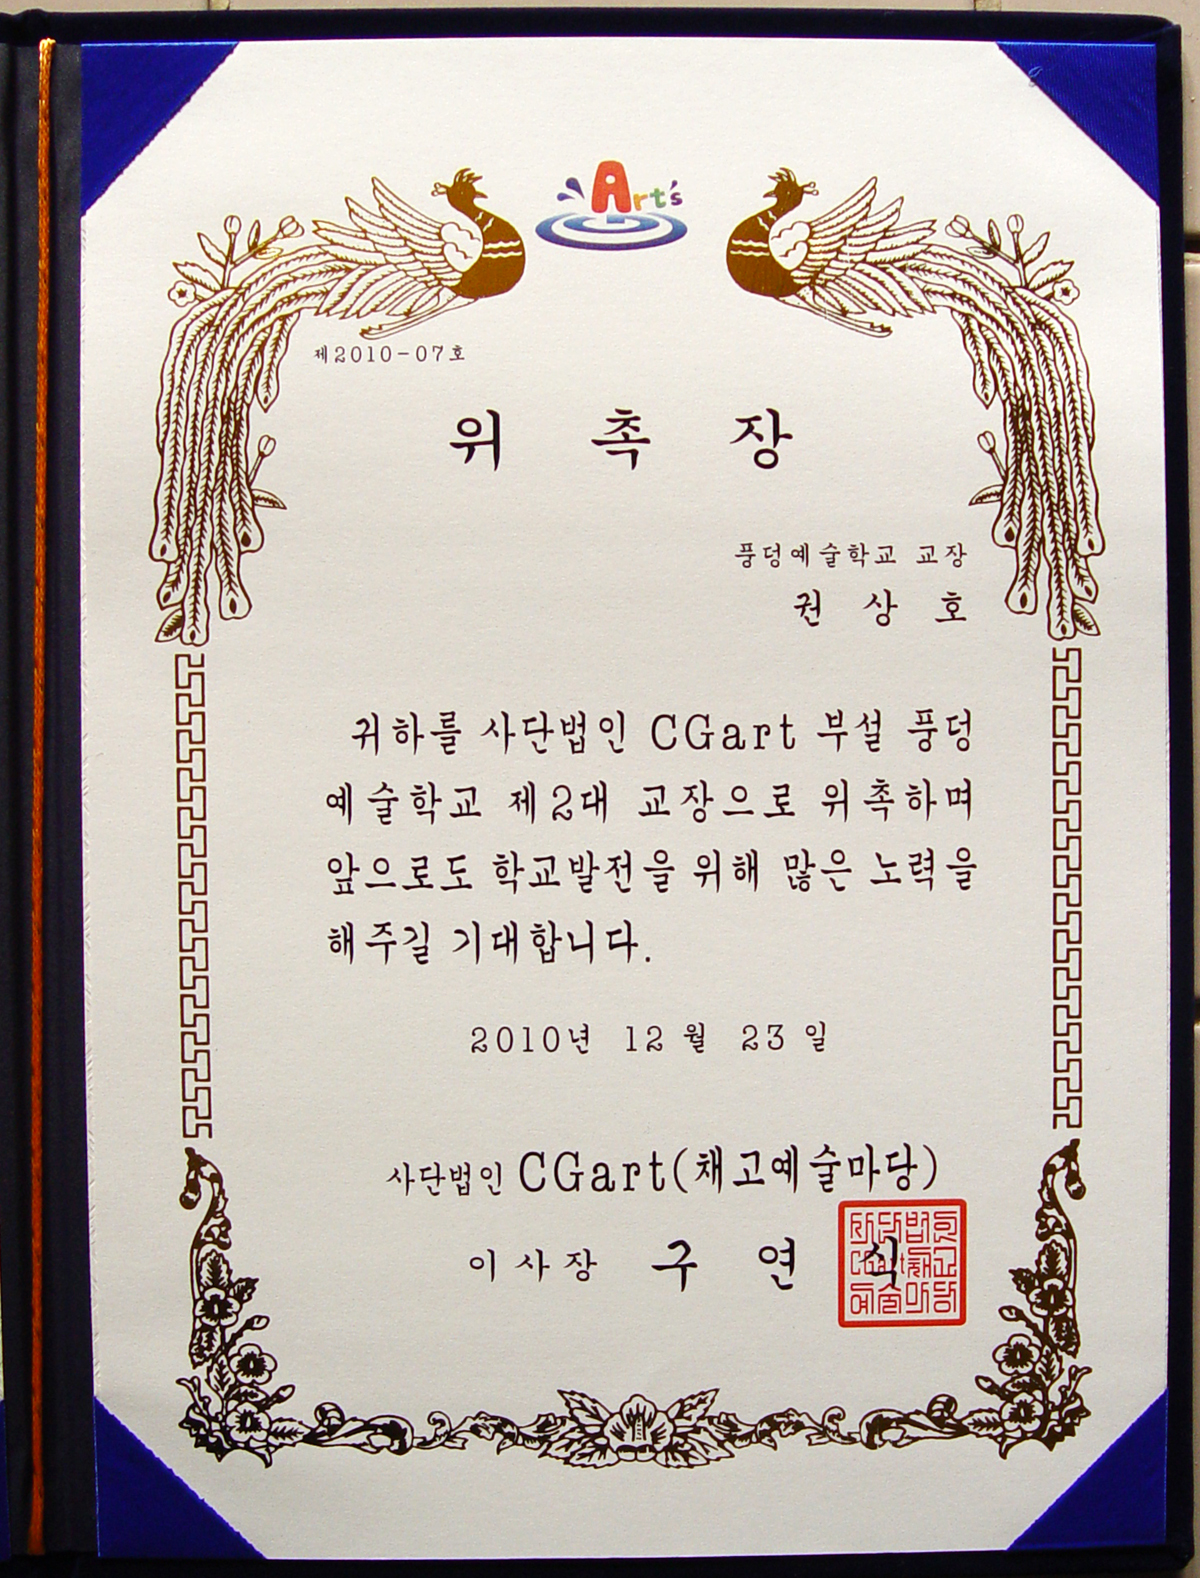 Art's
제2010-07호
위 촉 장
풍덩예술학교 교장
권 상 호
귀하를 사단법인 CGart 부설 풍덩
예술학교 제2대 교장으로 위촉하며
앞으로도 학교발전을 위해 많은 노력을
해주길 기대합니다.
2010년 12월 23일
사단법인 CGart(채고예술마당)
이사장 구 연 식
사단법인
CGart채고
예술마당